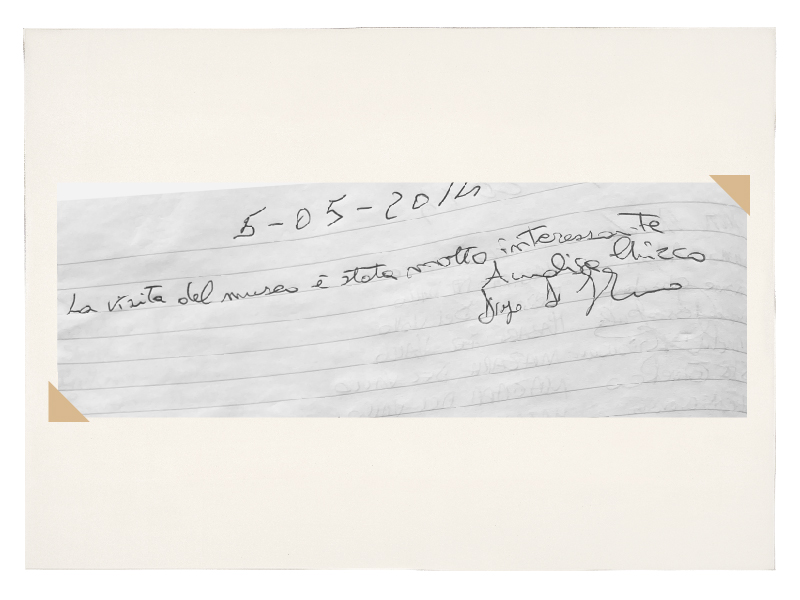 5-05-2014
La visita del museo è stata molto interessante
Annalisa Chizco
Diego Di